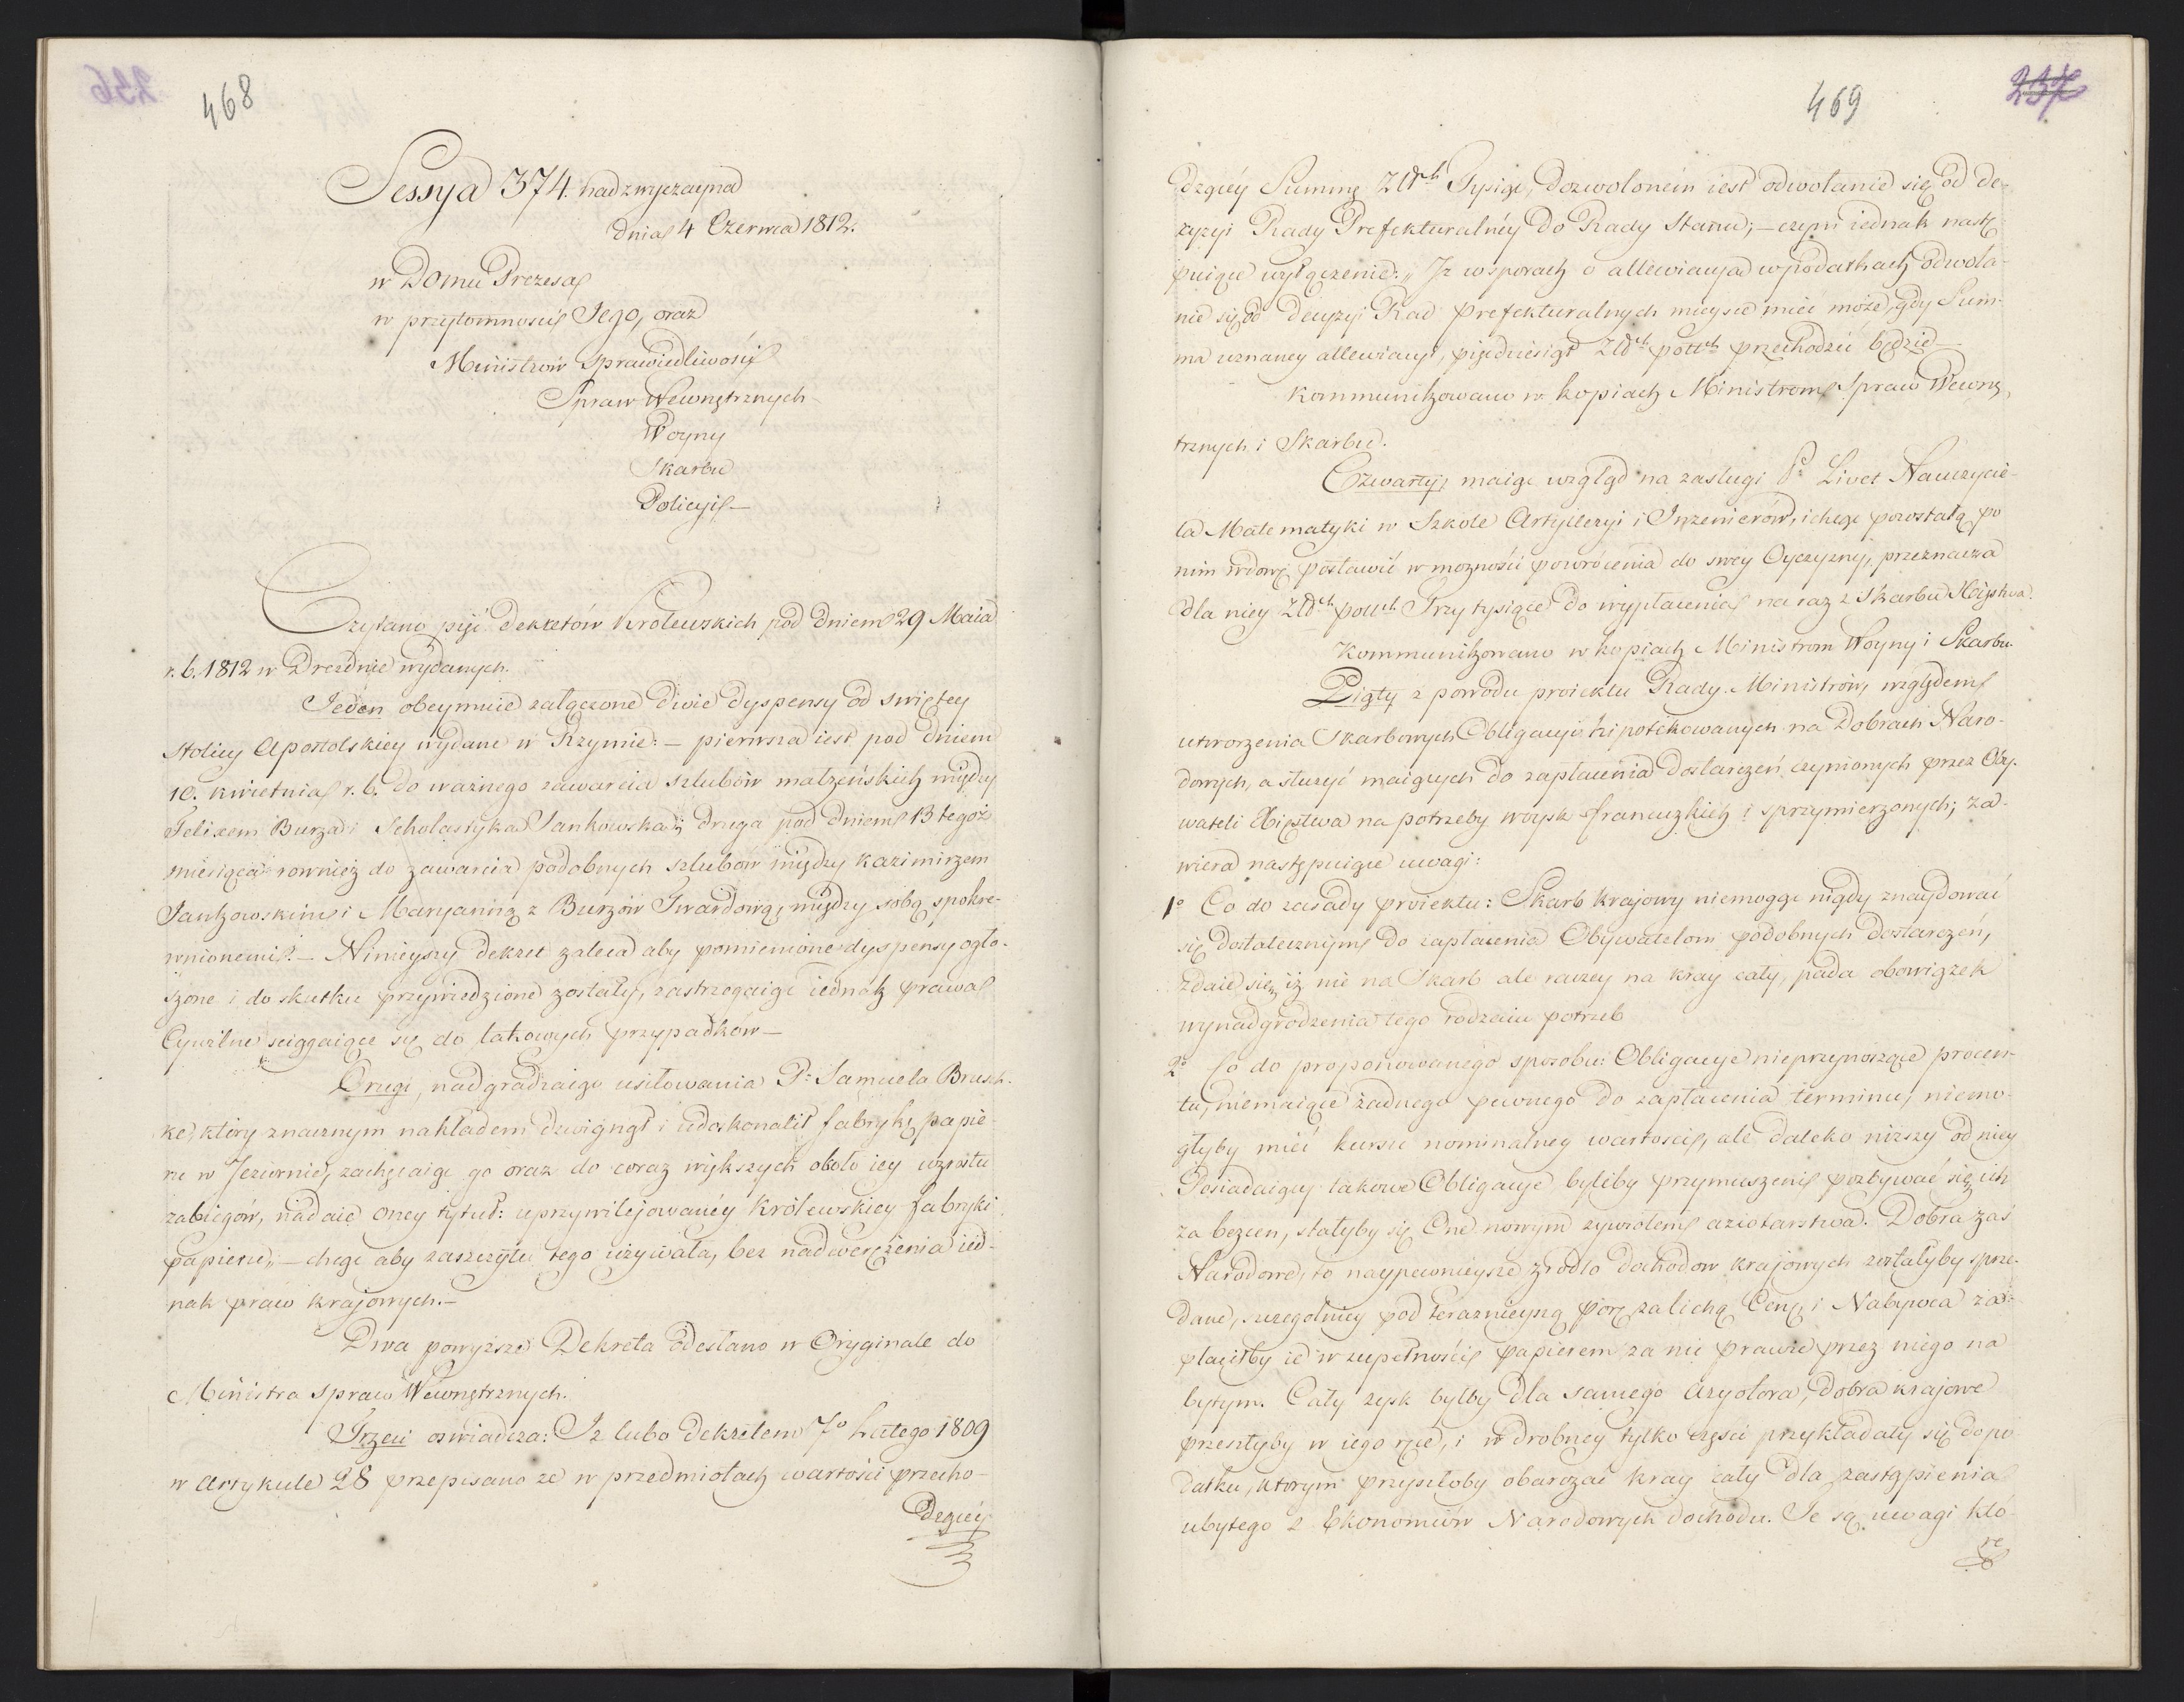 468
Sessya 374. nadzwyczayna
dnia 4 Czerwca 1812.
w Domu Prezesa
w przytomności Jego, oraz
Ministrów Sprawiedliwości
Spraw Wewnętrznych
Woyny
Skarbu
Policyi —
Czytano pięć Dekretów Królewskich pod dniem 29 Maia
r. b. 1812 w Dreźdnie wydanych.
Jeden obeymuie załączone dwie dyspensy od swiętey
Stolicy Apostolskiey wydane w Rzymie: — pierwsza iest pod dniem
10. kwietnia r. b. do ważnego zawarcia szlubów małżeńskich między
Felixem Burza i Scholastyką Jankowską; druga pod dniem 13 tegoż
miesiąca rownież do zawarcia podobnych szlubów między Kazimirzem
Jankowskim i Maryanną z Burzów Twardową, między sobą spokre-
wnionemi. — Ninieyszy dekret zaleca aby pomienione dyspensy ogło-
szone i do skutku przywiedzione zostały, zastrzegaiąc iednak prawa
Cywilne sciągaiące się do takowych przypadków —
Drugi, nadgradzaiąc usiłowania P. Samuela Brusch-
ke, który znacznym nakładem dzwignął i udoskonalił fabrykę papie-
ru w Jeziornie, zachęcaiąc go oraz do coraz większych około iey wzrostu
zabiegów, nadaie oney tytuł: uprzywilejowanéy Królewskiey fabryki
papieru, — chcąc aby zaszczytu tego używała, bez nadwerężenia ied-
nak praw krajowych. —
Dwa powyższe Dekreta odesłano w Oryginale do
Ministra Spraw Wewnętrznych.
Trzeci oswiadcza: Iż lubo dekretem 7o Lutego 1809
w Artykule 28 przepisano że w przedmiotach wartości przecho-
dzącéy
469
237
dzącéy Summę Złłch Tysiąc, dozwoloném iest odwołanie się od de-
cyzyi Rady Prefekturalnéy do Rady Stanu; — czyni iednak nastę-
puiące wyłączenie: „Iż w sporach o allewiacyą w podatkach odwoła-
nie się od decyzyi Rad Prefekturalnych mieysce mieć może, gdy Sum-
ma uznaney allewiacyi, pięćdziesiąt Złłch polłch przechodzić będzie —
Kommunikowano w kopiach Ministrom Spraw Wewnę-
trznych i Skarbu.
Czwarty, maiąc wzgląd na zasługi P. Livet Nauczycie-
la Matematyki w Szkole Artylleryi i Inżenierów, i chcąc pozostałą po
nim wdowę postawić w możności powrócenia do swey Oyczyzny, przeznacza
dla niey Złłch polłch Trzy tysiące do wypłacenia na raz z Skarbu Xięstwa.
Kommunikowano w kopiach Ministrom Woyny i Skarbu
Piąty z powodu proiektu Rady Ministrów, względem
utworzenia Skarbowych Obligacyi hipotekowanych na Dobrach Naro-
dowych, a służyć maiących do zapłacenia dostarczeń czynionych przez Oby-
wateli Xięstwa na potrzeby woysk francuzkich i sprzymierzonych; za-
wiera następuiące uwagi:
1o Co do zasady proiektu: Skarb krajowy niemogąc nigdy znaydować
się dostatecznym do zapłacenia Obywatelom podobnych dostarczeń,
zdaie się, iż nie na Skarb ale raczey na kray cały, pada obowiązek
wynadgrodzenia tego rodzaiu potrzeb
2o Co do proponowanego sposobu: Obligacye nieprzynoszące procen-
tu, niemaiące żadnego pewnego do zapłacenia terminu, niemo-
głyby mieć kursu nominalney wartości, ale daleko niższy od niey
Posiadaiący takowe Obligacye byliby przymuszeni pozbywać się ich
za bezcen, stałyby się One nowym żywiołem aziotarstwa. Dobra zaś
Narodowe, to naypewnieysze zrodło dochodów krajowych zostałyby sprze-
dane, szczegolniey pod teraznieyszą porę za lichą Cenę, i Nabywca za-
płaciłby ie w zupełności papierem za nic prawie przez niego na
bytym. Cały zysk byłby dla samego Azyotora, dobra krajowe
przeszłyby w iego ręce, i w drobney tylko części przykładały się do po
datku, którym przyszłoby obarczać kray cały dla zastąpienia
ubytego z Ekonomiów Narodowych dochodu. Te są uwagi któ-
re